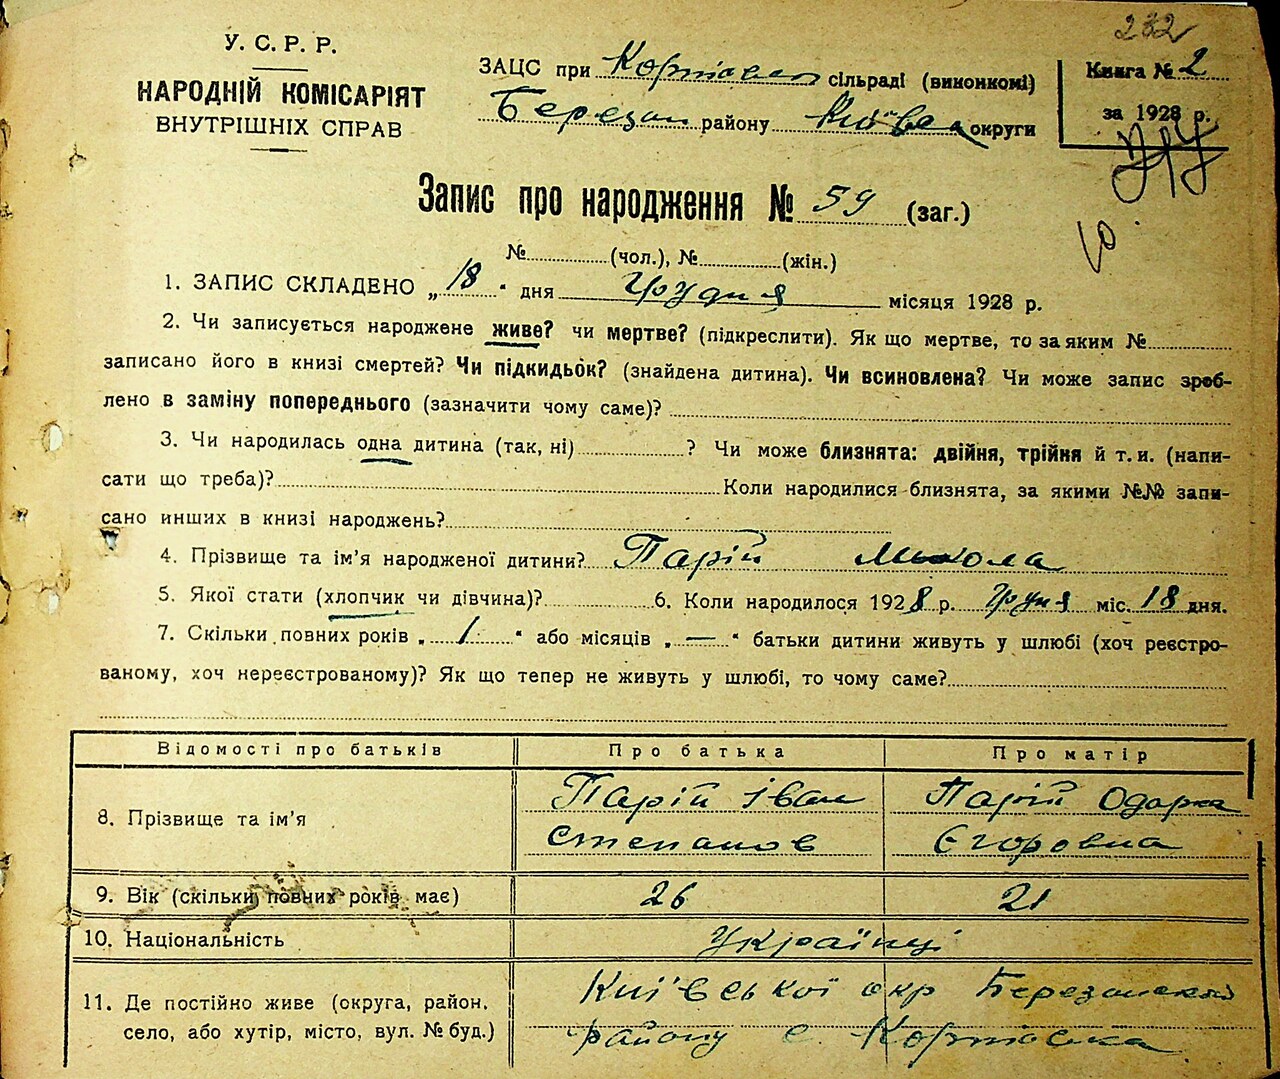 232
У. С. Р. Р.
НАРОДНІЙ КОМІСАРІЯТ
ВНУТРІШНІХ СПРАВ
ЗАЦС при сільраді (виконкомі)
Березан району Київськ округи
Книга № 2
за 1928 р.
Запис про народження № 59 (заг.)
№ (чол.), № (жін.)
1. ЗАПИС СКЛАДЕНО „18“ дня Грудня місяця 1928 р.
2. Чи записується народжене живе? чи мертве? (підкреслити). Як що мертве, то за яким №
записано його в книзі смертей? Чи підкидьок? (знайдена дитина). Чи всиновлена? Чи може запис зроб-
лено в заміну попереднього (зазначити чому саме)?
3. Чи народилась одна дитина (так, ні) ? Чи може близнята: двійня, трійня й т. и. (напи-
сати що треба)? Коли народилися близнята, за якими №№ запи-
сано инших в книзі народжень?
4. Прізвище та ім’я народженої дитини? Парій Микола
5. Якої стати (хлопчик чи дівчина)? 6. Коли народилося 1928 р. Грудня міс. 18 дня.
7. Скільки повних років „1“ або місяців „—“ батьки дитини живуть у шлюбі (хоч реєстро-
ваному, хоч нереєстрованому)? Як що тепер не живуть у шлюбі, то чому саме?
Відомості про батьків Про батька Про матір
8. Прізвище та ім’я Парій Іван Степанов Парій Одарка Єгоровна
9. Вік (скільки повних років має) 26 21
10. Національність Українці
11. Де постійно живе (округа, район, село, або хутір, місто, вул. № буд.) Київської окр Березанський
району с.